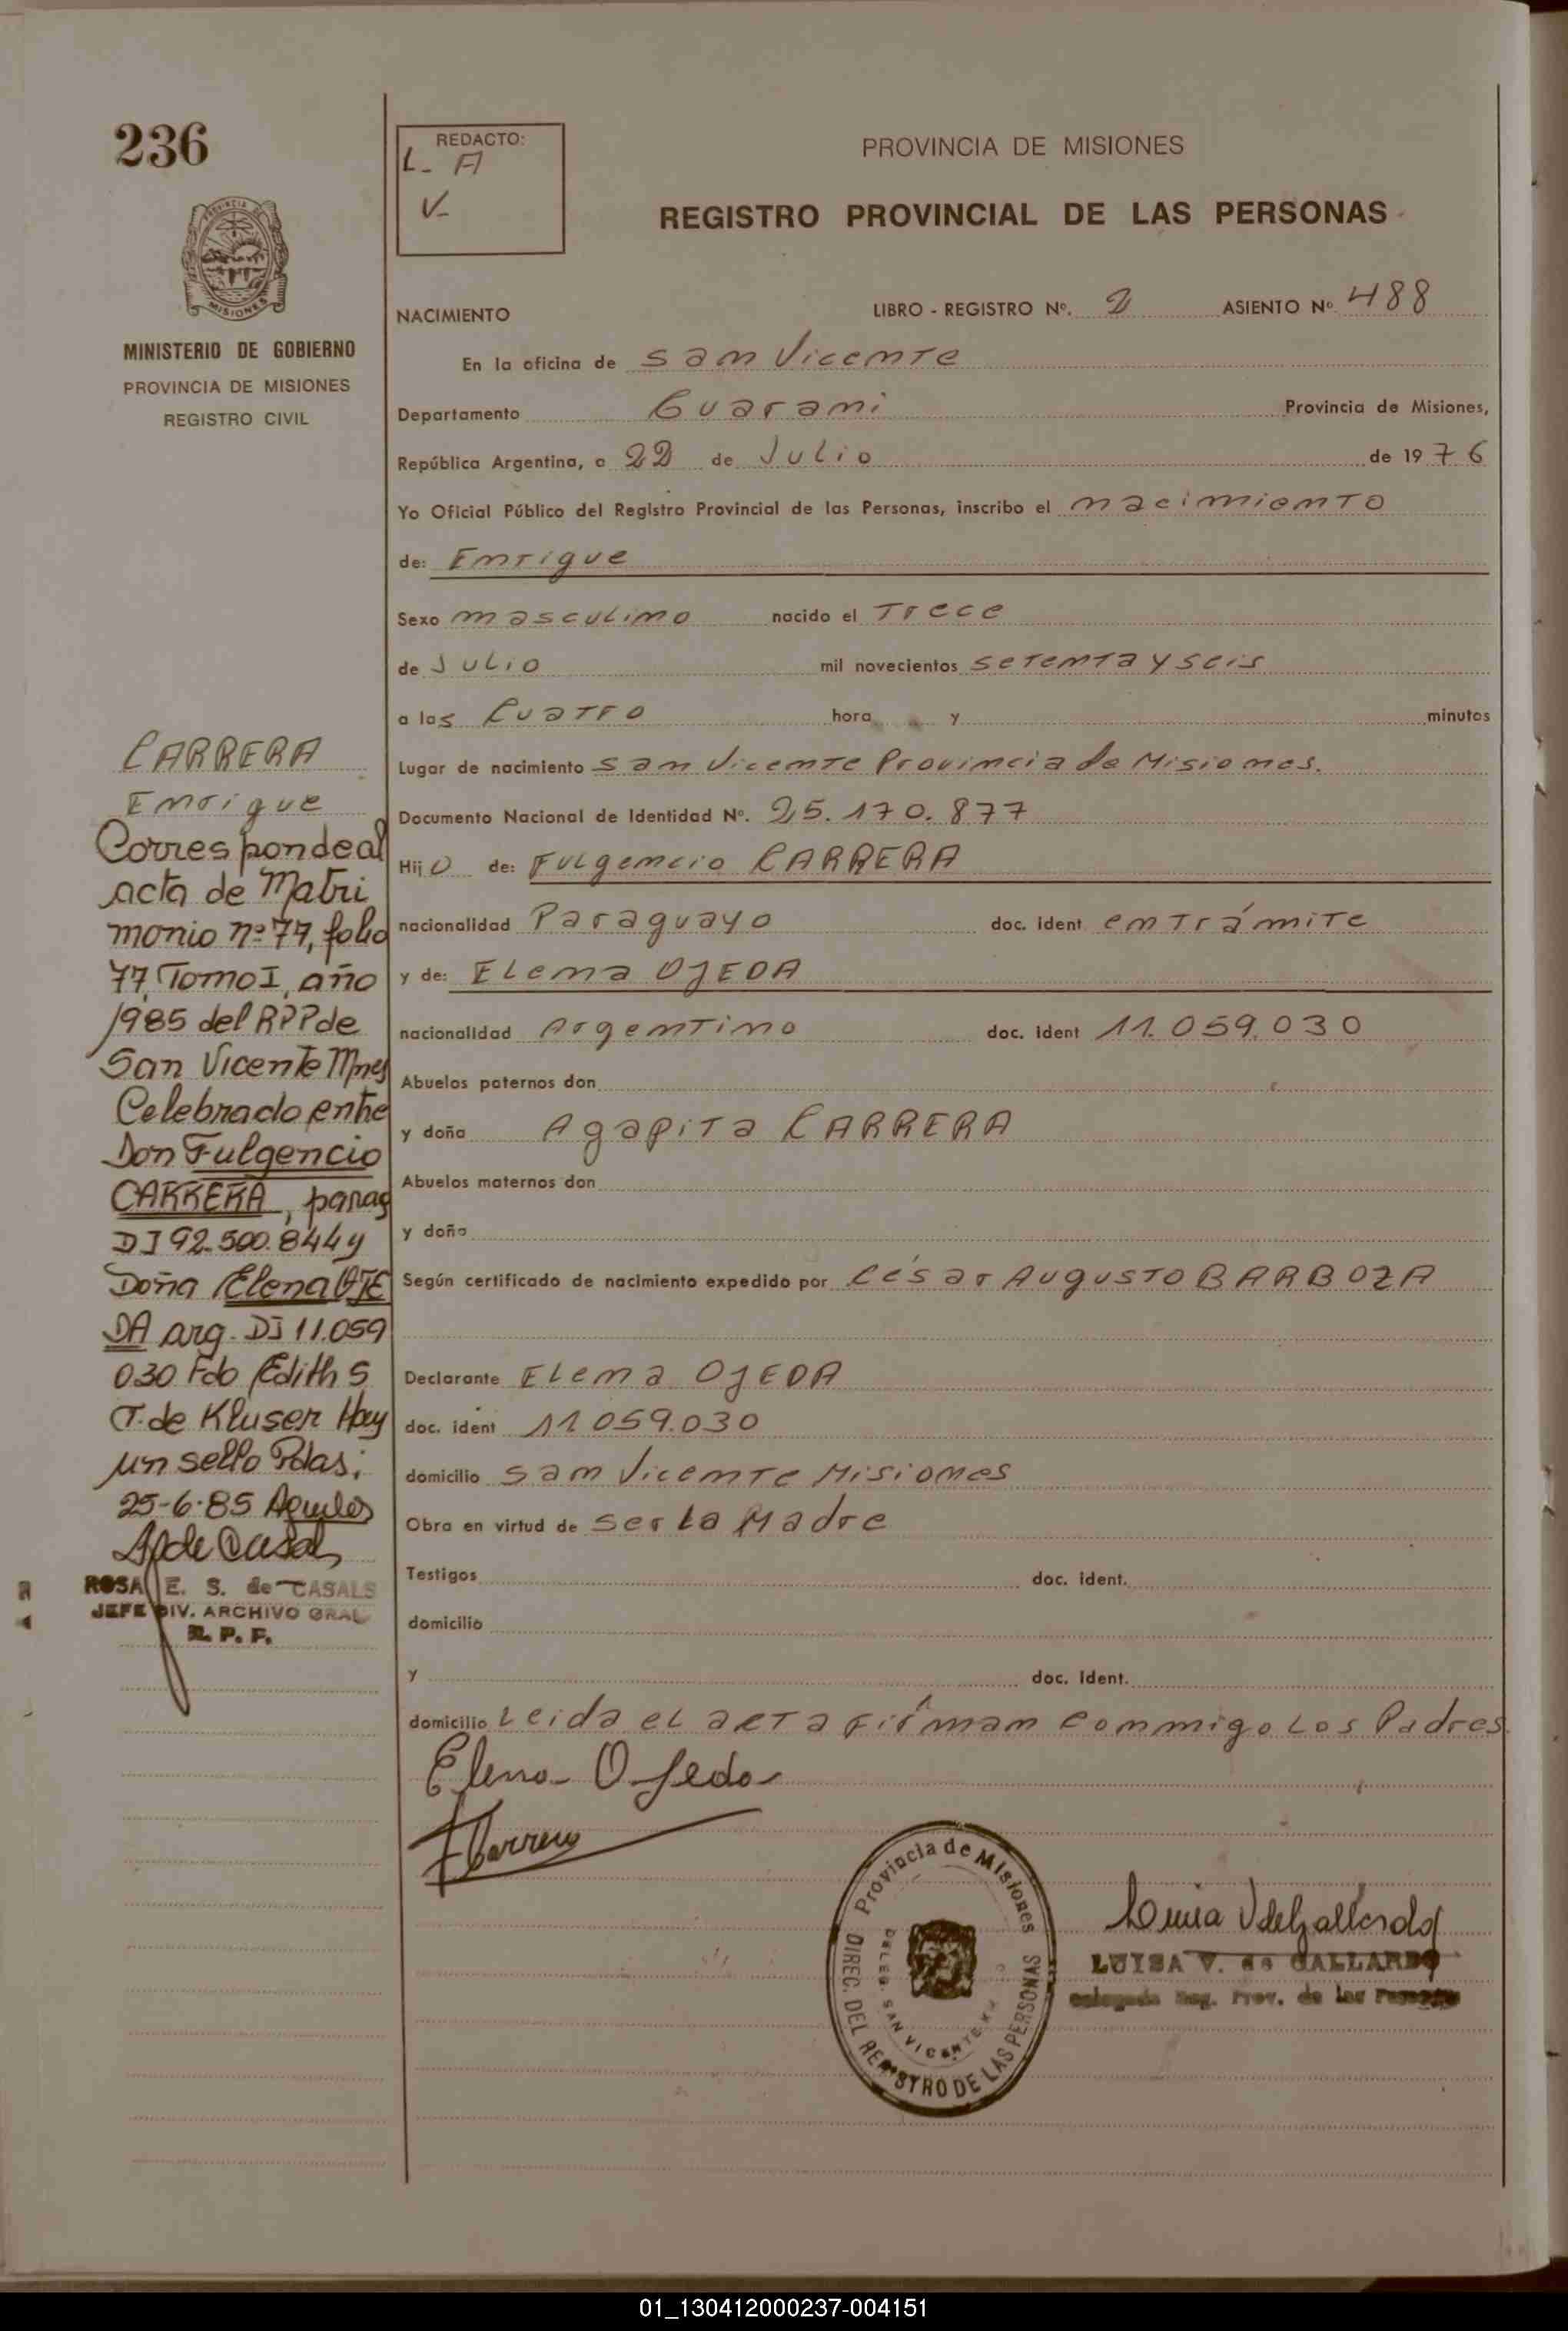 236
REDACTO:
L- A
V-
PROVINCIA DE MISIONES
REGISTRO PROVINCIAL DE LAS PERSONAS
PROVINCIA DE
MISIONES
MINISTERIO DE GOBIERNO
PROVINCIA DE MISIONES
REGISTRO CIVIL
NACIMIENTO LIBRO - REGISTRO Nº. 2 ASIENTO Nº 488
En la oficina de San Vicente
Departamento Guarani Provincia de Misiones,
República Argentina, a 22 de Julio de 1976
Yo Oficial Público del Registro Provincial de las Personas, inscribo el nacimiento
de: Enrique
Sexo masculino nacido el Trece
de Julio mil novecientos setenta y seis
a las Cuatro hora y minutos
Lugar de nacimiento San Vicente Provincia de Misiones.
Documento Nacional de Identidad Nº. 25.170.877
Hijo de: Fulgencio CARRERA
nacionalidad Paraguayo doc. ident en trámite
y de: Elena OJEDA
nacionalidad Argentino doc. ident 11.059.030
Abuelos paternos don
y doña Agapita CARRERA
Abuelos maternos don
y doña
Según certificado de nacimiento expedido por César Augusto BARBOZA
Declarante Elena OJEDA
doc. ident 11.059.030
domicilio San Vicente Misiones
Obra en virtud de ser la Madre
Testigos doc. ident.
domicilio
y doc. ident.
domicilio Leida el acta firman conmigo los Padres
Elena Ojeda
FCarrera
CARRERA
Enrique
Corresponde al
acta de Matri
monio nº 77, folio
77, Tomo I, año
1985 del RPP de
San Vicente Mnes
Celebrado entre
Don Fulgencio
CARRERA, parag
DI 92.500.844 y
Doña Elena OJE
DA arg. DI 11.059
030 Fdo Edith S
T. de Kluser Hay
un sello Pdas;
25-6-85
ROSA E. S. de CASALS
JEFE DIV. ARCHIVO GRAL
R. P. P.
Provincia de Misiones
DELEG. SAN VICENTE
DIREC. DEL REGISTRO DE LAS PERSONAS
Luisa V de Gallardo
LUISA V. de GALLARDO
Delegada Reg. Prov. de las Personas
01_130412000237-004151